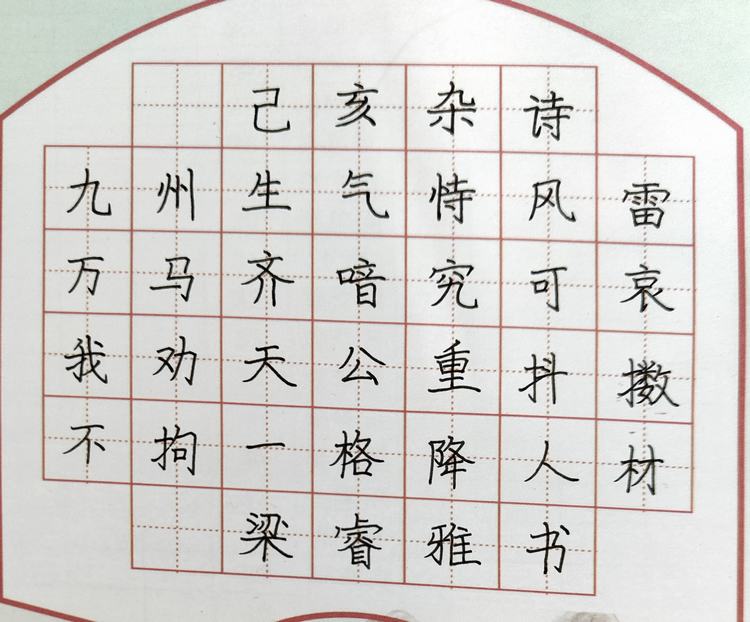 己亥杂诗
九州生气恃风雷
万马齐喑究可哀
我劝天公重抖擞
不拘一格降人材
梁睿雅书